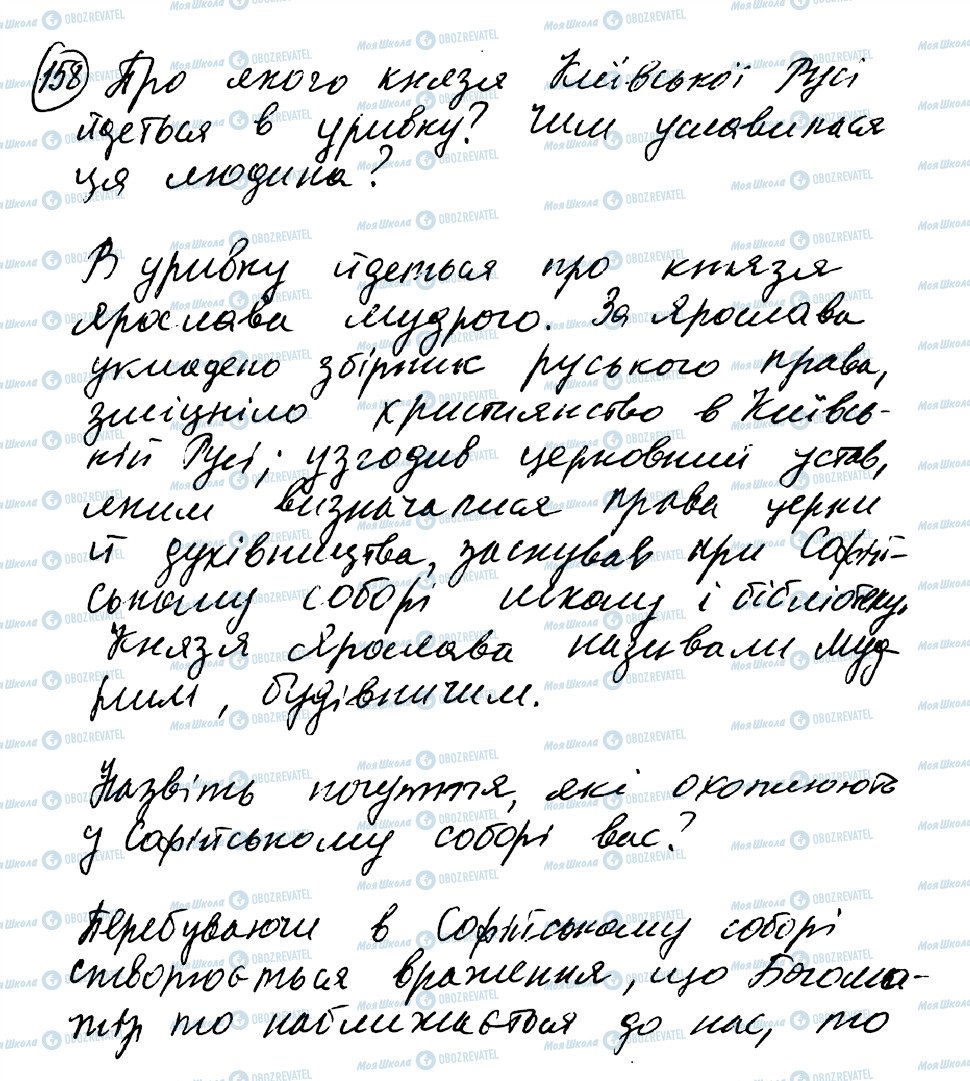 158 Про якого князя Київської Русі
йдеться в уривку? Чим уславилася
ця людина?
В уривку йдеться про князя
Ярослава Мудрого. За Ярослава
укладено збірник руського права,
зміцніло християнство в Київсь-
кій Русі; узгодив церковний устав,
яким визначалися права церки
й духівництва, заснував при Софій-
ському соборі школу і бібліотеку.
Князя Ярослава називали Муд-
рим, будівничим.
Назвіть почуття, які охоплюють
у Софійському соборі вас?
Перебуваючи в Софійському соборі
створюється враження, що Богома-
тір то наближається до нас, то